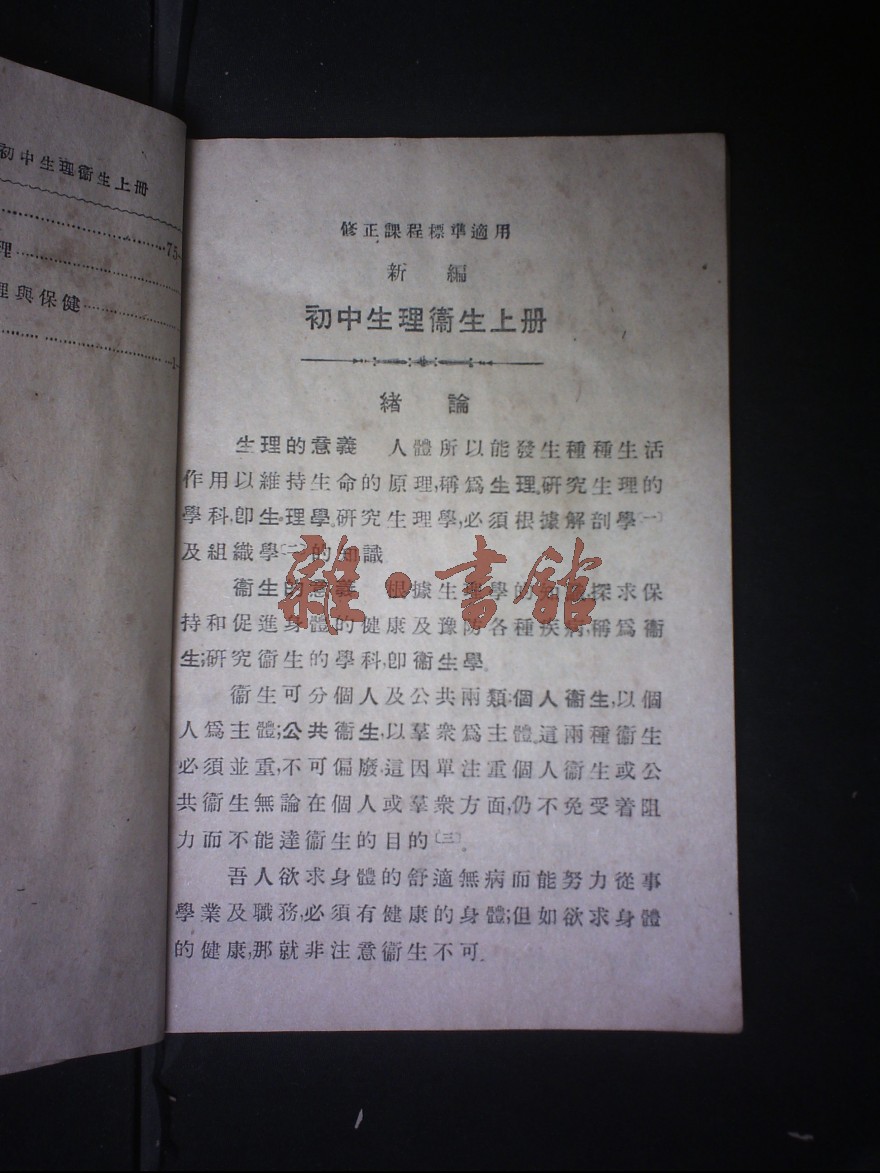 初中生理衞生上冊
75
理
理與保健
1
修正課程標準適用
新編
初中生理衞生上册
緒論
生理的意義 人體所以能發生種種生活
作用以維持生命的原理,稱爲生理.研究生理的
學科,卽生理學.研究生理學,必須根據解剖學〔一〕
及組織學〔二〕的知識.
衞生的意義 根據生理學的知識,探求保
持和促進身體的健康及豫防各種疾病,稱爲衞
生;研究衞生的學科,卽衞生學.
衞生可分個人及公共兩類:個人衞生,以個
人爲主體;公共衞生,以羣衆爲主體.這兩種衞生
必須並重,不可偏廢.這因單注重個人衞生或公
共衞生無論在個人或羣衆方面,仍不免受着阻
力而不能達衞生的目的〔三〕.
吾人欲求身體的舒適無病而能努力從事
學業及職務,必須有健康的身體;但如欲求身體
的健康,那就非注意衞生不可.
雜·書館